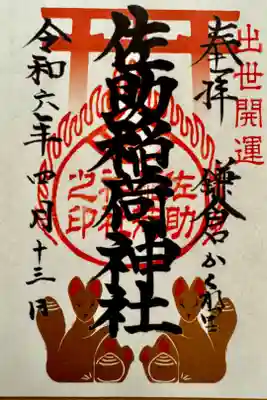 出世開運
奉拝
鎌倉かくれ里
佐助稲荷神社
佐助
稲荷神社
之印
令和六年四月十三日